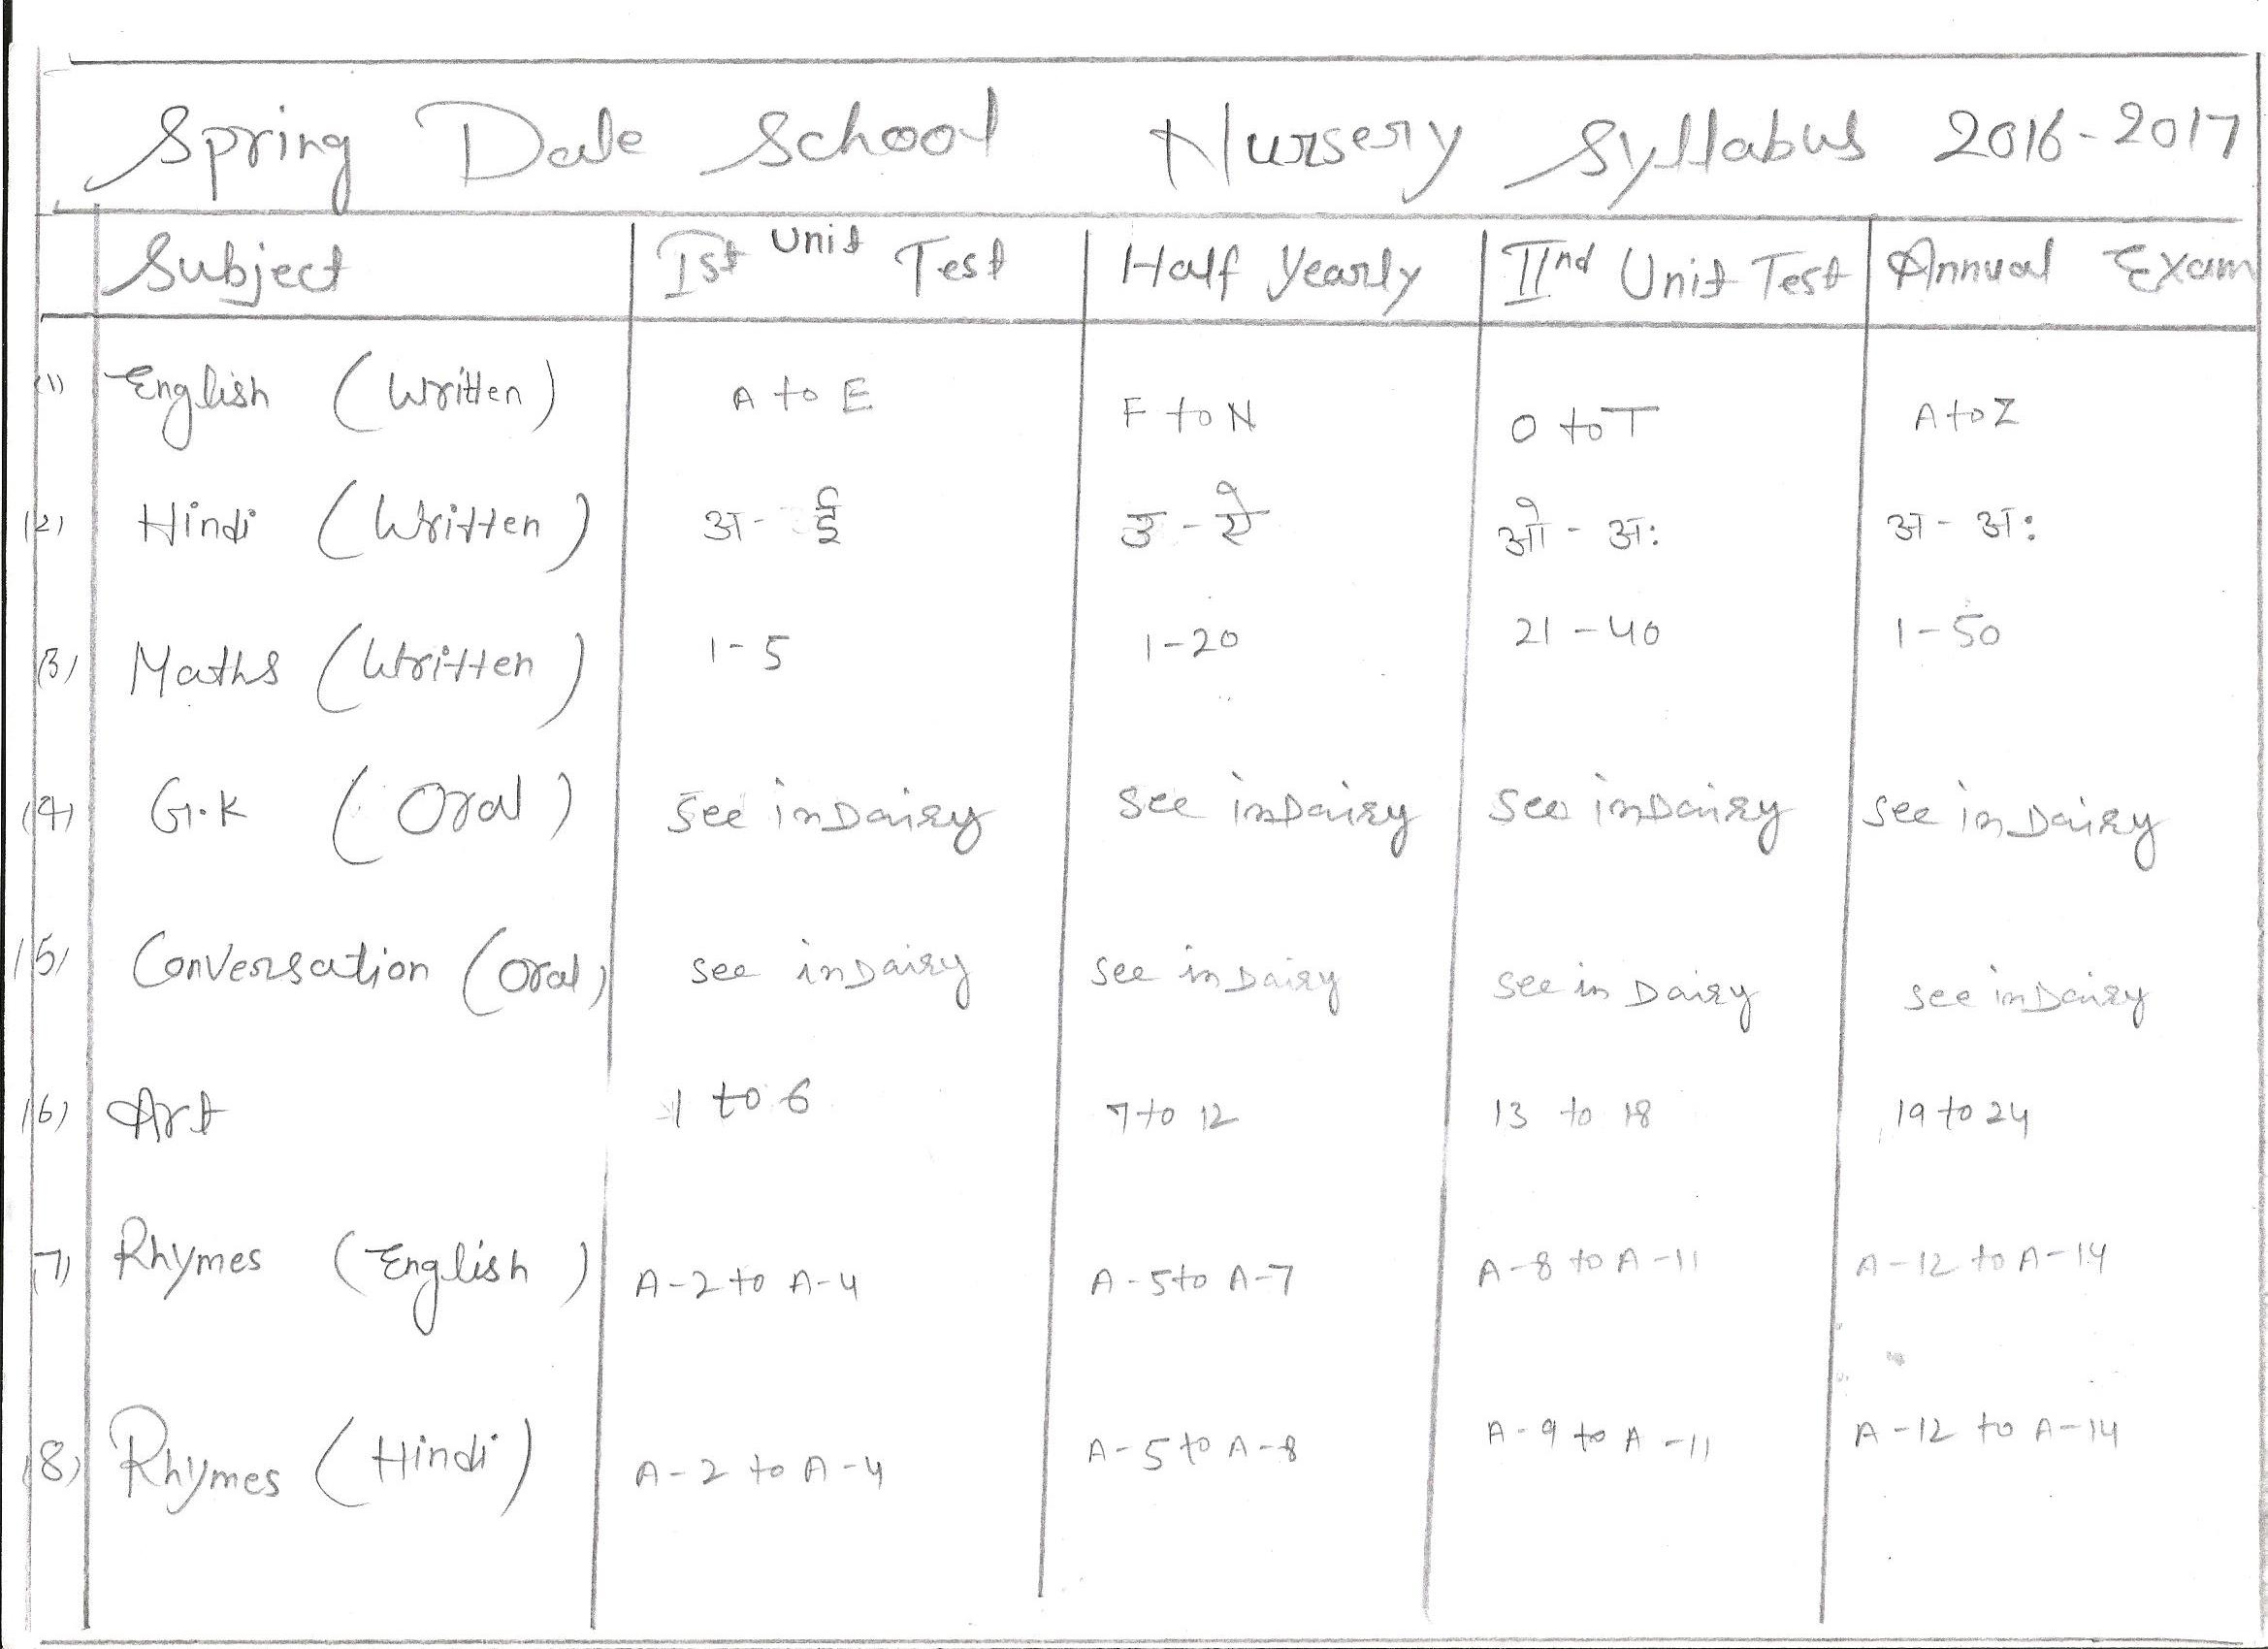 Spring Dale School Nursery Syllabus 2016-2017
Subject Ist Unit Test Half Yearly IInd Unit Test Annual Exam
(1) English (Written) A to E F to N O to T A to Z
(2) Hindi (Written) अ - ई उ - ऐ ओ - अः अ - अः
(3) Maths (Written) 1-5 1-20 21-40 1-50
(4) G.K (Oral) See in Dairy See in Dairy See in Dairy See in Dairy
(5) Conversation (Oral) See in Dairy See in Dairy See in Dairy See in Dairy
(6) Art 1 to 6 7 to 12 13 to 18 19 to 24
(7) Rhymes (English) A-2 to A-4 A-5 to A-7 A-8 to A-11 A-12 to A-14
(8) Rhymes (Hindi) A-2 to A-4 A-5 to A-8 A-9 to A-11 A-12 to A-14